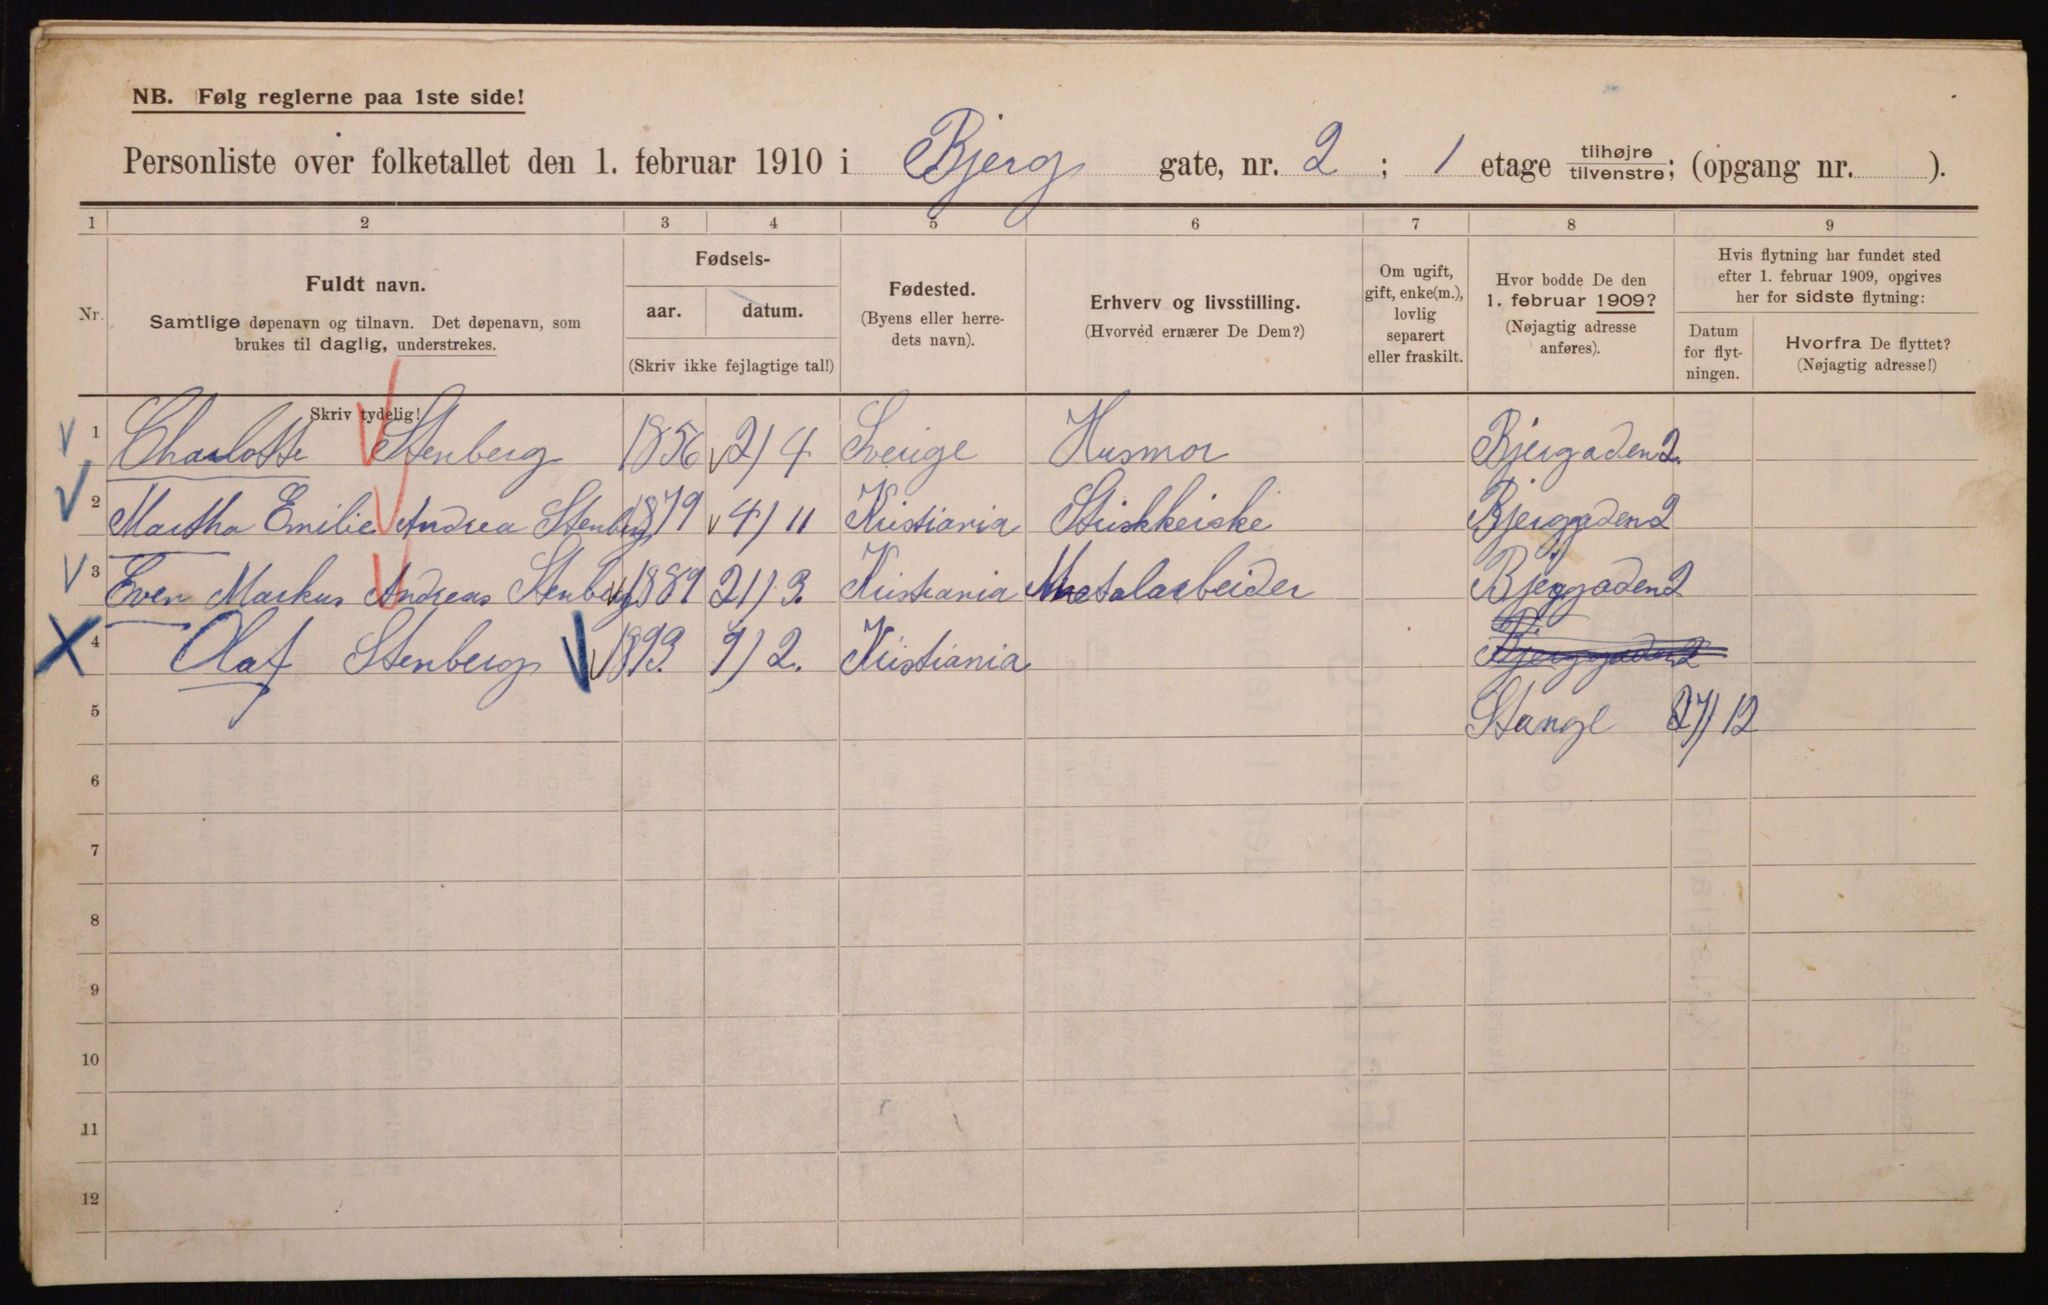 NB. Følg reglerne paa 1ste side!
Personliste over folketallet den 1. februar 1910 i Bjerg gate, nr. 2 ; 1 etage tilhøjre tilvenstre; (opgang nr. ).
1 2 3 4 5 6 7 8 9
Nr.
Fuldt navn.
Samtlige døpenavn og tilnavn. Det døpenavn, som
brukes til daglig, understrekes.
Fødsels-
aar. datum.
(Skriv ikke fejlagtige tal!)
Fødested.
(Byens eller herre-
dets navn).
Erhverv og livsstilling.
(Hvorved ernærer De Dem?)
Om ugift,
gift, enke(m.),
lovlig
separert
eller fraskilt.
Hvor bodde De den
1. februar 1909?
(Nøjagtig adresse
anføres).
Hvis flytning har fundet sted
efter 1. februar 1909, opgives
her for sidste flytning:
Datum
for flyt-
ningen.
Hvorfra De flyttet?
(Nøjagtig adresse!)
Skriv tydelig!
1 Charlotte Stenberg 1856 2/4 Sverige Husmor Bjergaden 2.
2 Martha Emilie Andrea Stenberg 1879 4/11 Kristiania Bjerggaden 2
3 Even Markus Andreas Stenberg 1889 21/3. Kristiania Metalarbeider Bjerggaden 2
4 Olaf Stenberg 1893. 9/2. Kristiania Bjerggaden 2
5 Stange 27/12
6
7
8
9
10
11
12